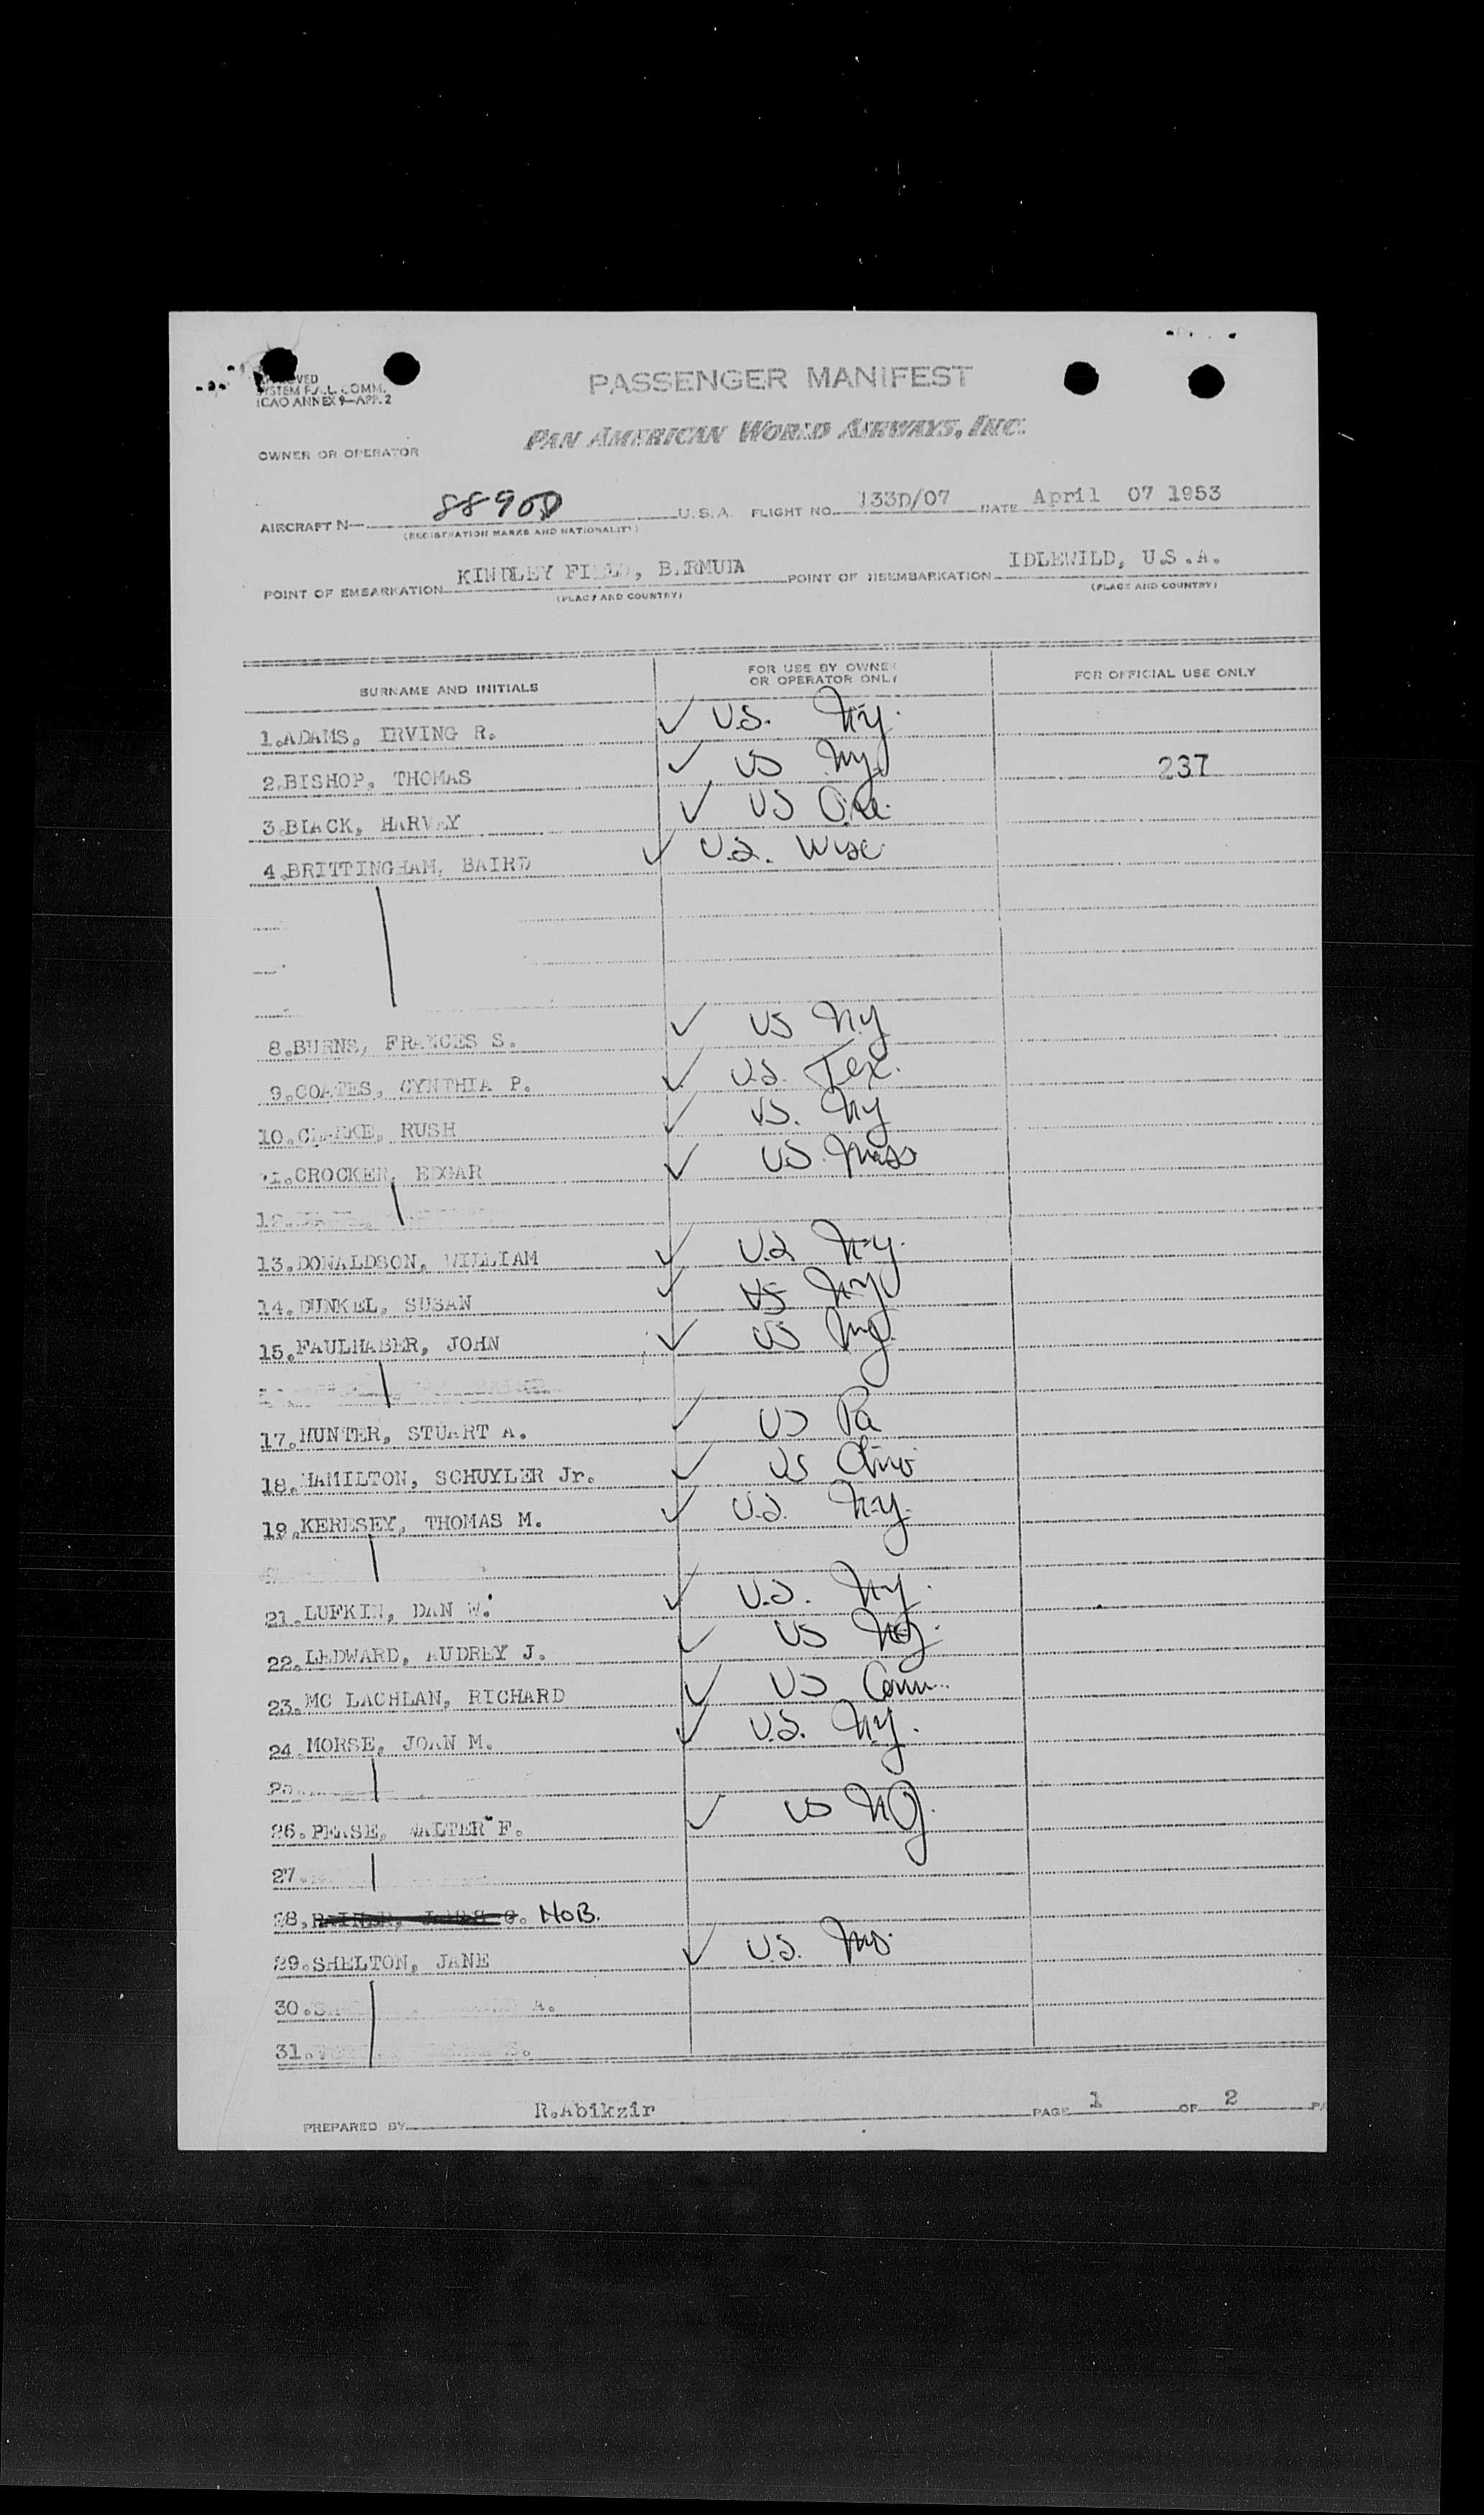 PASSENGER MANIFEST
SYSTEM F.A.L. COMM.
ICAO ANNEX 9—APP. 2
PAN AMERICAN WORLD AIRWAYS, INC.
OWNER OR OPERATOR
AIRCRAFT N— U.S.A. FLIGHT NO. 133D/07 DATE April 07 1953
(REGISTRATION MARKS AND NATIONALITY)
POINT OF EMBARKATION KINDLEY FIELD, BERMUDA POINT OF DISEMBARKATION IDLEWILD, U.S.A.
(PLACE AND COUNTRY) (PLACE AND COUNTRY)
SURNAME AND INITIALS FOR USE BY OWNER OR OPERATOR ONLY FOR OFFICIAL USE ONLY
1.ADAMS, IRVING R. ✓ U.S. N.Y.
2.BISHOP, THOMAS ✓ US NY 237
3.BLACK, HARVEY ✓ US
4.BRITTINGHAM, BAIRD ✓ U.S. Wisc
8.BURNS, FRANCES S. ✓ US N.Y
9.COATES, CYNTHIA P. ✓ U.S. Tex.
10.CLARKE, RUSH ✓ US. NY
11.CROCKER, EDGAR ✓ US. Mass
12.
13.DONALDSON, WILLIAM ✓ U.S N.Y.
14.DUNKEL, SUSAN ✓ US N.Y
15.FAULHABER, JOHN ✓ US
17.HUNTER, STUART A. ✓ US Pa
18.HAMILTON, SCHUYLER Jr. ✓ US Ohio
19.KERESEY, THOMAS M. ✓ U.S. N.Y.
21.LUFKIN, DAN W. ✓ U.S. N.Y.
22.LEDWARD, AUDREY J. ✓ US
23.MC LACHLAN, RICHARD ✓ US Conn.
24.MORSE, JOAN M. ✓ U.S. N.Y.
25.
26.PEASE, WALTER F. ✓ US NJ.
27.
28. NOB.
29.SHELTON, JANE ✓ U.S. Mo.
30. A.
31.
PREPARED BY R.Abikzir PAGE 1 OF 2